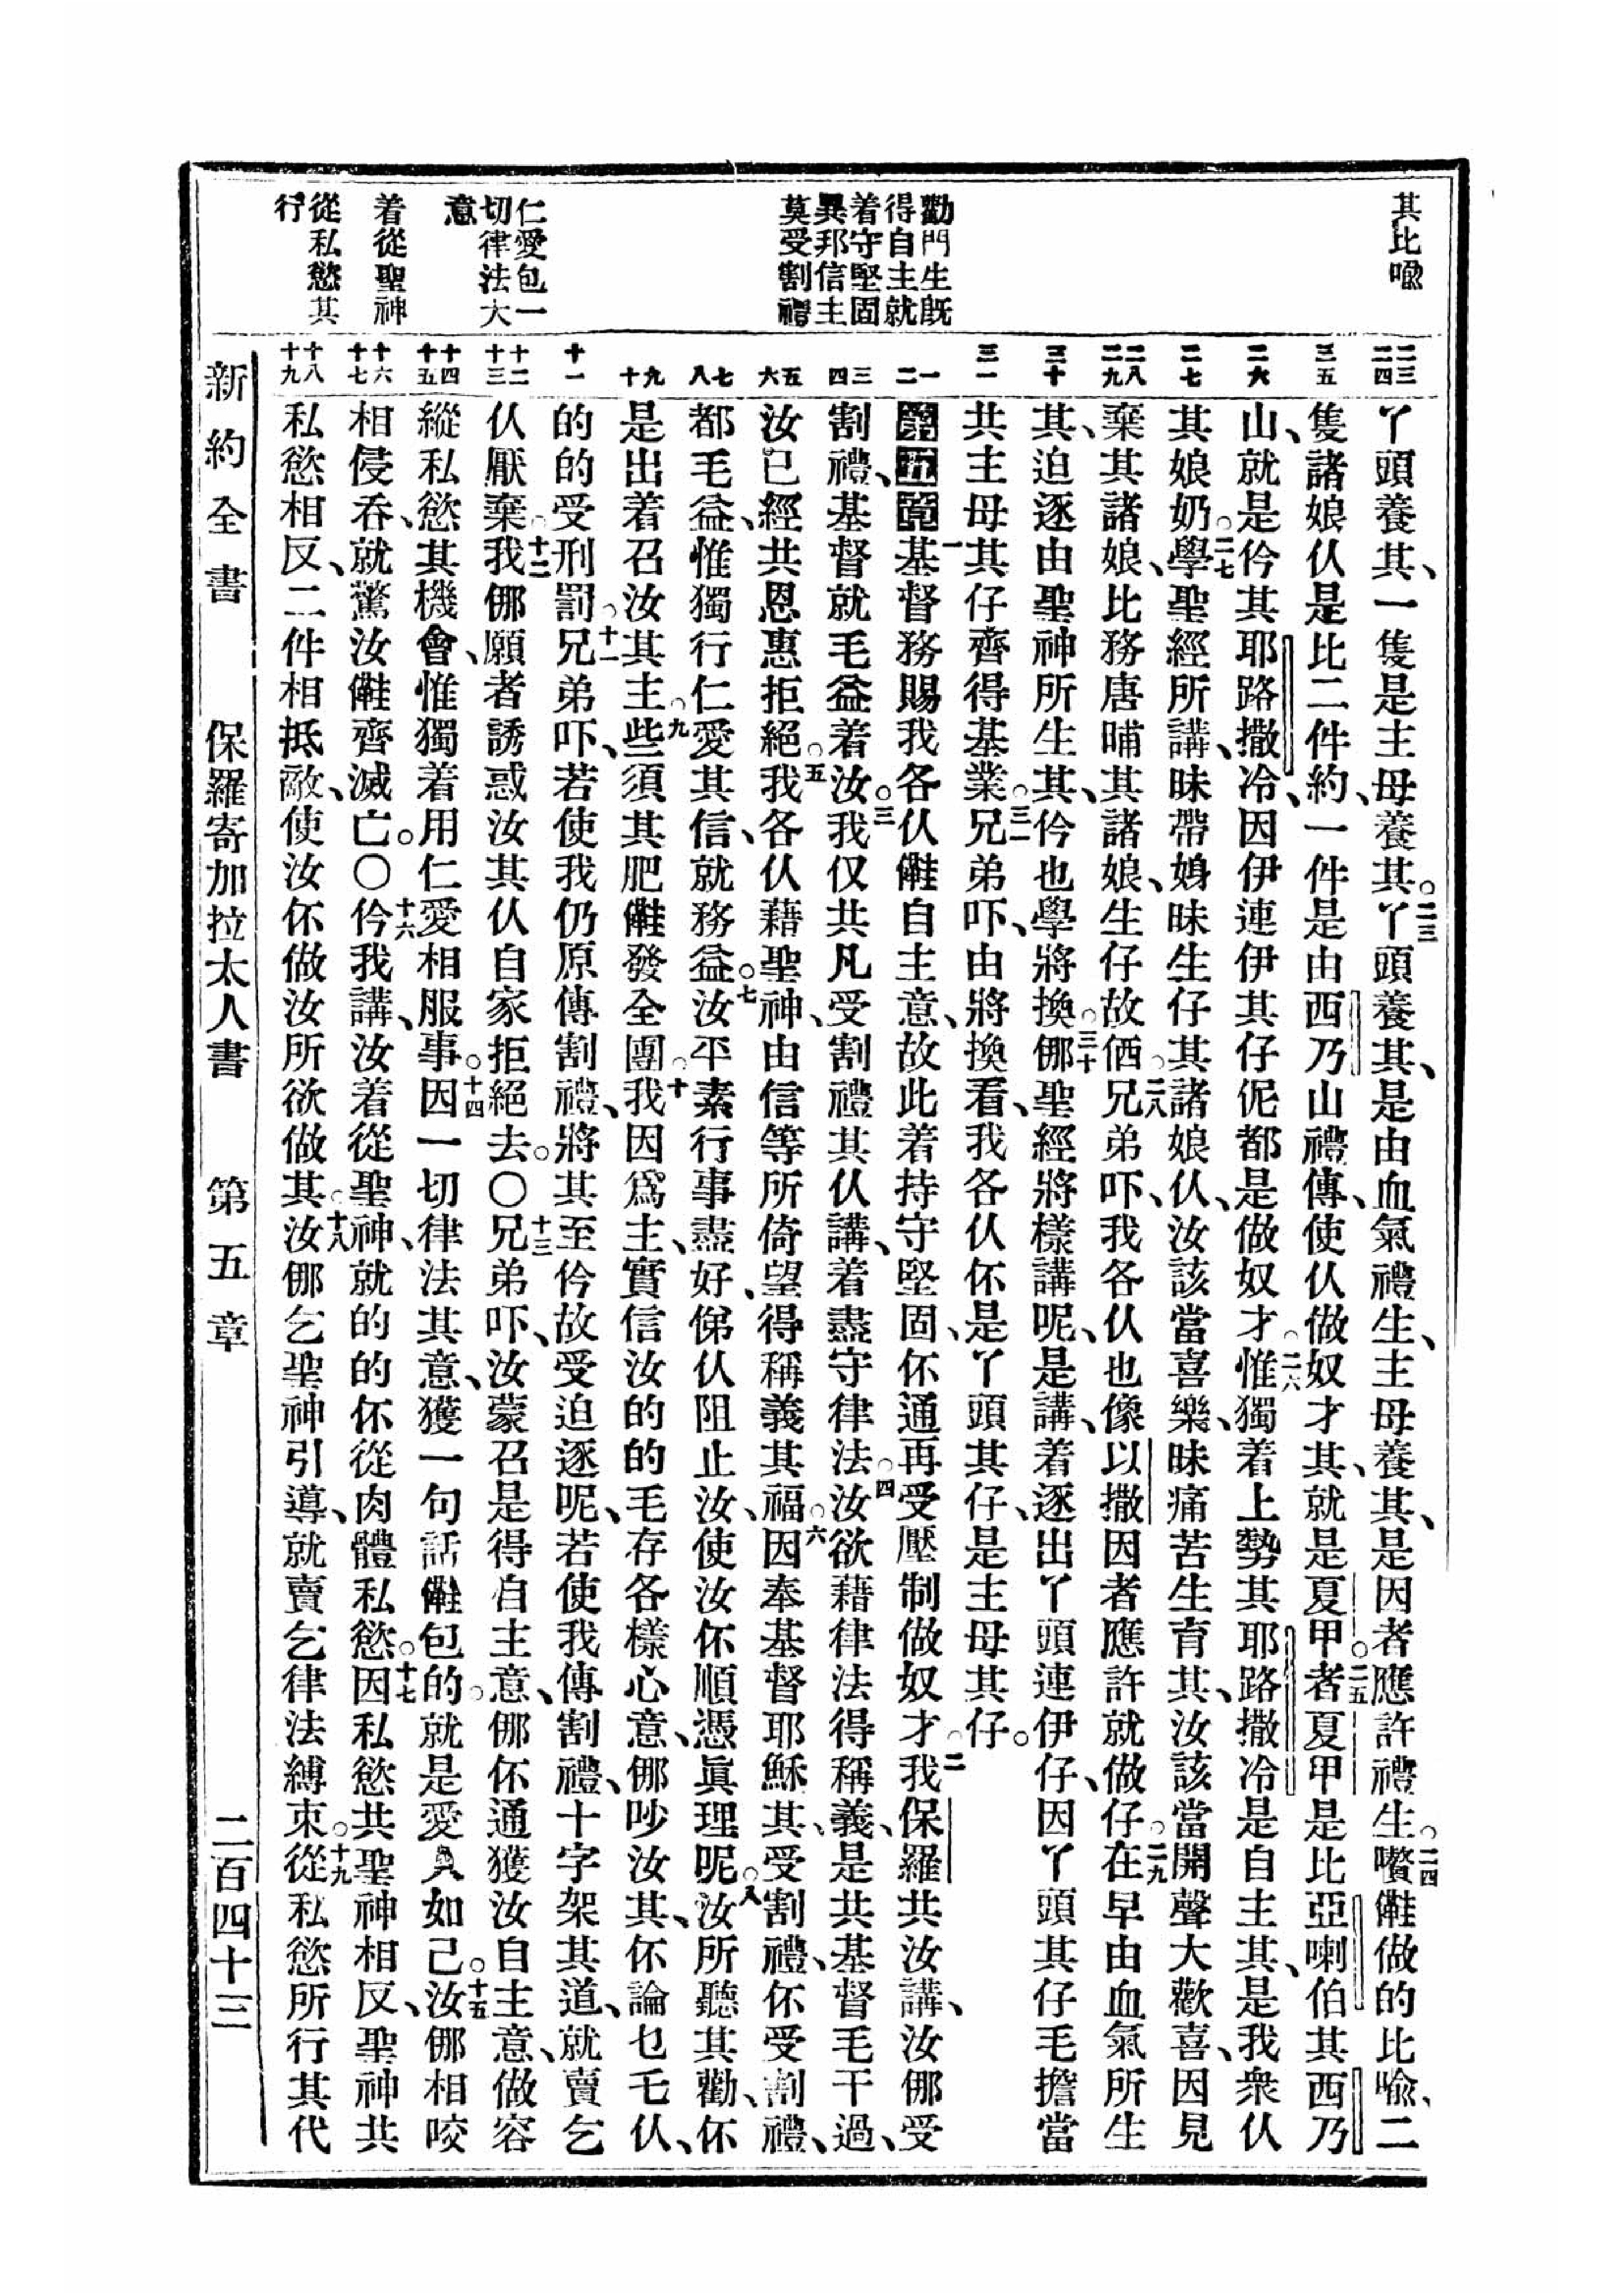 其比喻
勸門生既
得自主就
着守堅固
異邦信主
莫受割禮
仁愛包一
切律法大
意
着從聖神
從私慾其
行
二三
二四
三五
二六
二七
二八
二九
三十
三一
一
二
三
四
五
六
七
八
九
十
十一
十二
十三
十四
十五
十六
十七
十八
十九
丫頭養其、一隻是主母養其。二三丫頭養其、是由血氣禮生、主母養其、是因者應許禮生。二四囋㒰做的比喻、二
隻諸娘仈是比二件約、一件是由西乃山禮傳、使仈做奴才其、就是夏甲。二五者夏甲是比亞喇伯其西乃
山、就是仱其耶路撒冷、因伊連伊其仔伲都是做奴才。二六惟獨着上勢其耶路撒冷是自主其、是我衆仈
其娘奶。二七學聖經所講、昧帶娚昧生仔其諸娘仈、汝該當喜樂、昧痛苦生育其、汝該當開聲大歡喜、因見
棄其諸娘、比務唐晡其諸娘、生仔故㑚。二八兄弟吓、我各仈也像以撒因者應許就做仔。二九在早由血氣所生
其、迫逐由聖神所生其、仱也學將換。三十㑚聖經將樣講呢、是講、着逐出丫頭連伊仔、因丫頭其仔毛擔當
共主母其仔齊得基業。三一兄弟吓、由將換看、我各仈伓是丫頭其仔、是主母其仔。
第五章一基督務賜我各仈㒰自主意、故此着持守堅固、伓通再受壓制做奴才。二我保羅共汝講、汝㑚受
割禮、基督就毛益着汝。三我仅共凡受割禮其仈講、着盡守律法。四汝欲藉律法得稱義、是共基督毛干過、
汝已經共恩惠拒絕。五我各仈藉聖神、由信等所倚望、得稱義其福。六因奉基督耶穌其、受割禮、伓受割禮、
都毛益、惟獨行仁愛其信、就務益。七汝平素行事盡好、俤仈阻止汝、使汝伓順憑眞理呢。八汝所聽其勸、伓
是出着召汝其主。九些須其肥㒰發全團。十我因爲主、實信汝的的毛存各樣心意、㑚吵汝其、伓論乜乇仈、
的的受刑罰。十一兄弟吓、若使我仍原傳割禮、將其至仱故受迫逐呢、若使我傳割禮、十字架其道、就賣乞
仈厭棄。十二我㑚願者誘惑汝其仈自家拒絕去。〇十三兄弟吓、汝蒙召是得自主意、㑚伓通獲汝自主意、做容
縱私慾其機會、惟獨着用仁愛相服事。十四因一切律法其意、獲一句話㒰包的。就是愛人如己。十五汝㑚相咬
相侵吞、就驚汝㒰齊滅亡。〇十六仱我講、汝着從聖神、就的的伓從肉體私慾。十七因私慾共聖神相反、聖神共
私慾相反、二件相抵敵、使汝伓做汝所欲做其。十八汝㑚乞聖神引導、就賣乞律法縛束。十九從私慾所行其代
新約全書 保羅寄加拉太人書 第五章 二百四十三